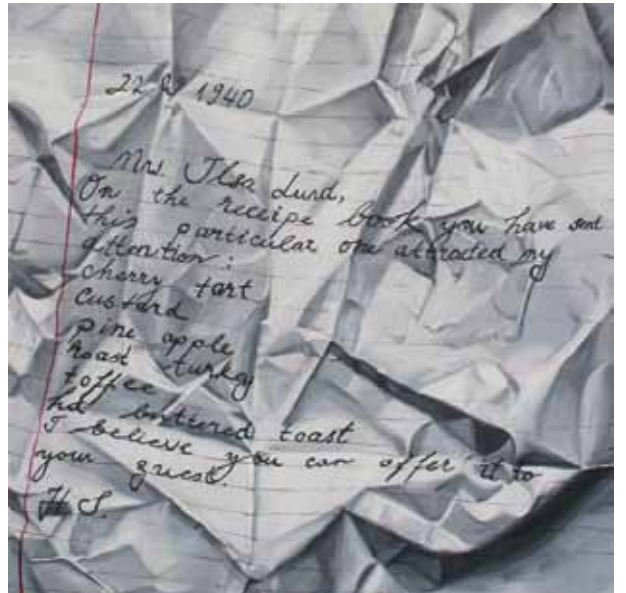 22 1940
Mrs Ilsa Lund,
On the receipe book you have sent
this particular one attracted my
attention:
cherry tart
custard
pine apple
roast turkey
toffee
hot buttered toast
I believe you can offer it to
your guest.
H S.